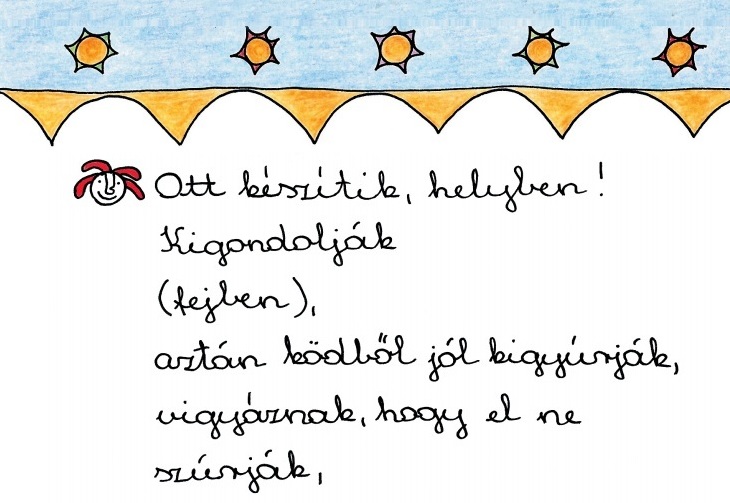 Ott készítik, helyben!
Kigondolják
(fejben),
aztán ködből jól kigyúrják,
vigyáznak, hogy el ne
szúrják,